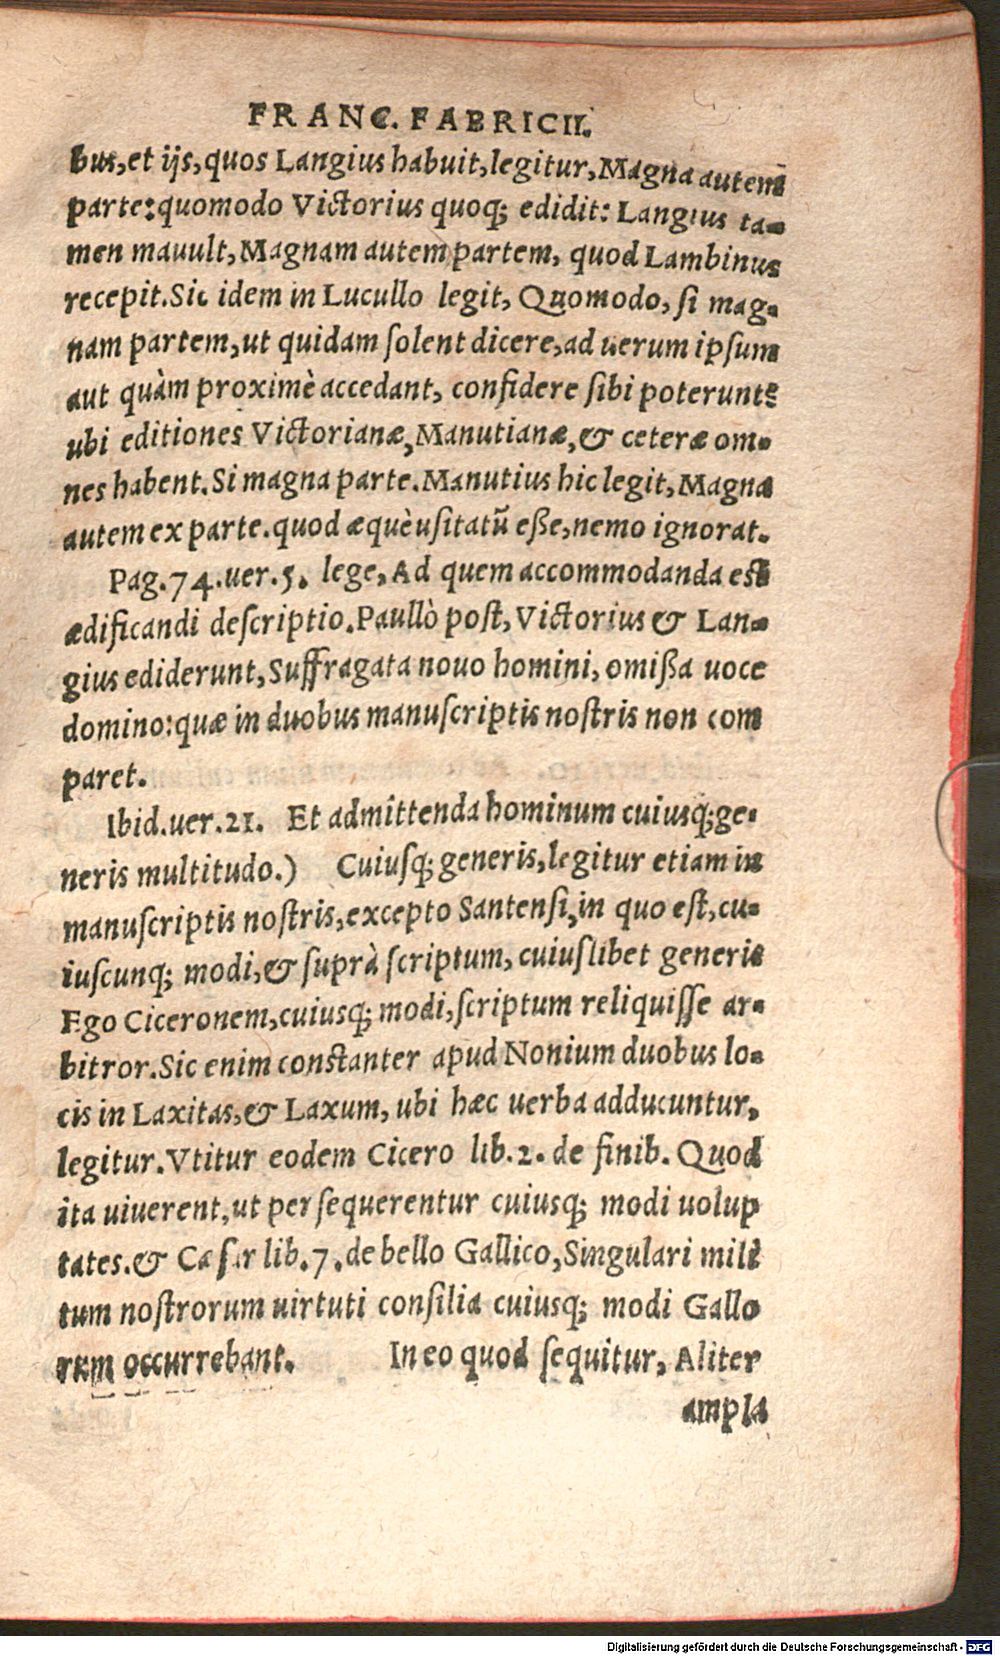 FRANC. FABRICII.
bus,et ijs,quos Langius habuit,legitur,Magna autem
parte:quomodo Victorius quoq; edidit: Langius ta-
men mauult,Magnam autem partem, quod Lambinus
recepit.Sic idem in Lucullo legit, Quomodo, ſi mag-
nam partem,ut quidam ſolent dicere,ad uerum ipſum
aut quàm proximè accedant, confidere ſibi poterunt?
ubi editiones Victorianæ,Manutianæ,& ceteræ om-
nes habent.Si magna parte.Manutius hic legit,Magna
autem ex parte.quod æquè uſitatū eſſe,nemo ignorat.
Pag.74.uer.5. lege,Ad quem accommodanda est
ædificandi deſcriptio.Paullò poſt,Victorius & Lan-
gius ediderunt,Suffragata nouo homini,omiſſa uoce
domino:quæ in duobus manuſcriptis noſtris non com
paret.
Ibid.uer.21. Et admittenda hominum cuiusq;ge-
neris multitudo.) Cuiuſq;generis,legitur etiam in
manuſcriptis noſtris,excepto Santenſi,in quo eſt,cu-
iuſcunq; modi,& ſuprà ſcriptum, cuiuſlibet generis
Ego Ciceronem,cuiusq; modi,ſcriptum reliquiſſe ar-
bitror.Sic enim constanter apud Nonium duobus lo-
cis in Laxitas,& Laxum, ubi hæc uerba adducuntur,
legitur.Vtitur eodem Cicero lib.2. de finib. Quod
ita uiuerent,ut perſequerentur cuiusq; modi uolup
tates.& Cæſar lib.7.de bello Gallico,Singulari mili
tum noſtrorum uirtuti conſilia cuiusq; modi Gallo
rum occurrebant. In eo quod ſequitur, Aliter
ampla
Digitalisierung gefördert durch die Deutsche Forschungsgemeinschaft - DFG